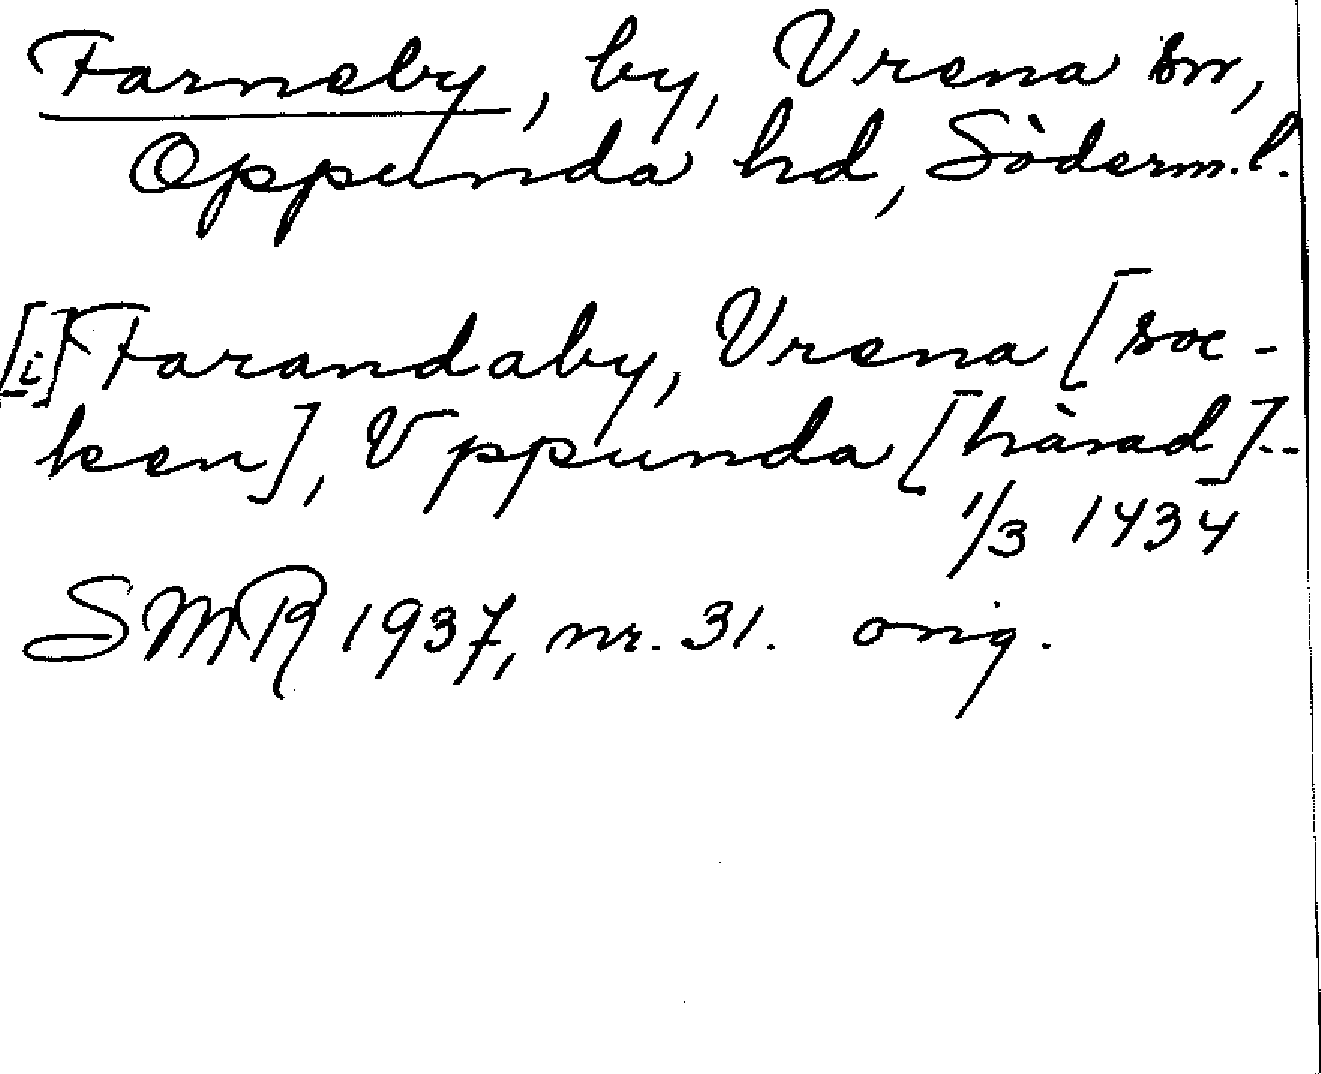 Farneby, by, Vrena sn,
Oppunda hd, Söderm.l.
[i] Farandaby, Vrena [soc-
ken], Vppunda [härad]..
1/3 1434
SMR 1937, nr. 31. orig.